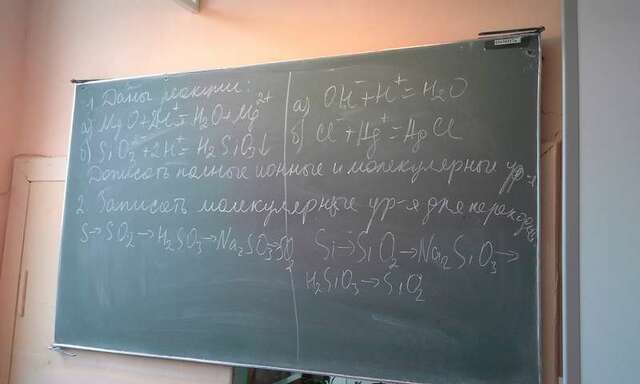 1. Даны реакции:
а) MgO+2H⁺=H₂O+Mg²⁺
б) SiO₃²⁻+2H⁺=H₂SiO₃↓
а) OH⁻+H⁺=H₂O
б) Cl⁻+Ag⁺=AgCl
Дописать полные ионные и молекулярные ур-я
2. Записать молекулярные ур-я для перехода:
S→SO₂→H₂SO₃→Na₂SO₃→SO₂
Si→SiO₂→Na₂SiO₃→
H₂SiO₃→SiO₂